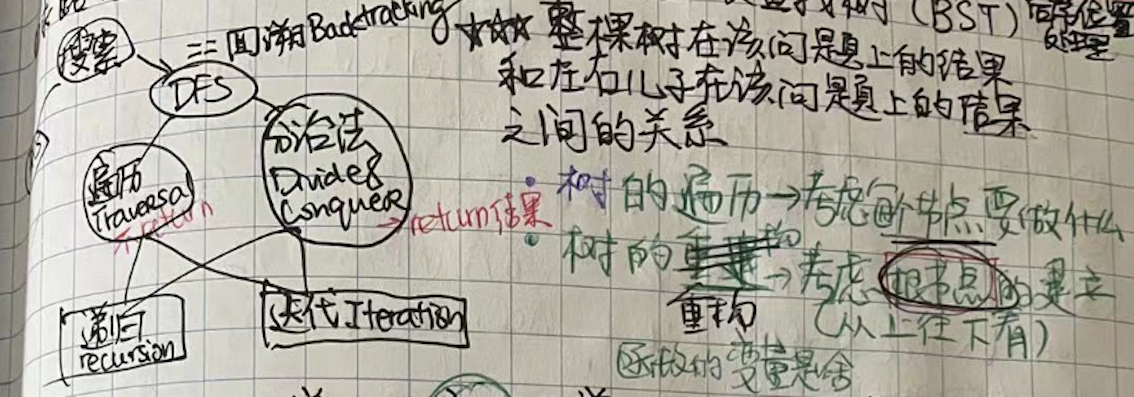 搜索
DFS
== 回溯Backtracking
遍历
Traversal
不return
分治法
Divide&
ConqueR
→return结果
递归
recursion
迭代 Iteration
(BST)
☆☆☆ 整棵树在该问题上的结果
和左右儿子在该问题上的结果
之间的关系
• 树的遍历→考虑每个节点要做什么
• 树的重构→考虑根节点的建立
重构
(从上往下看)
变量是啥